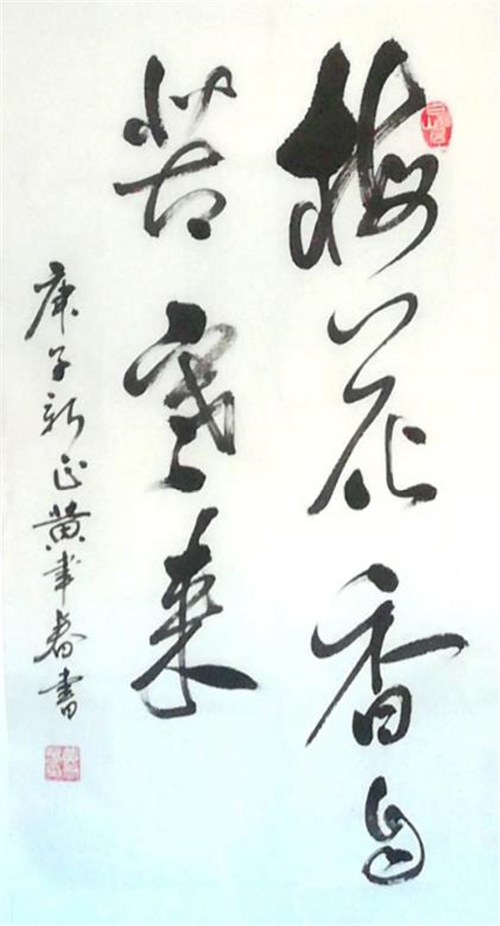 梅花香自
苦寒来
庚子新正黄春書